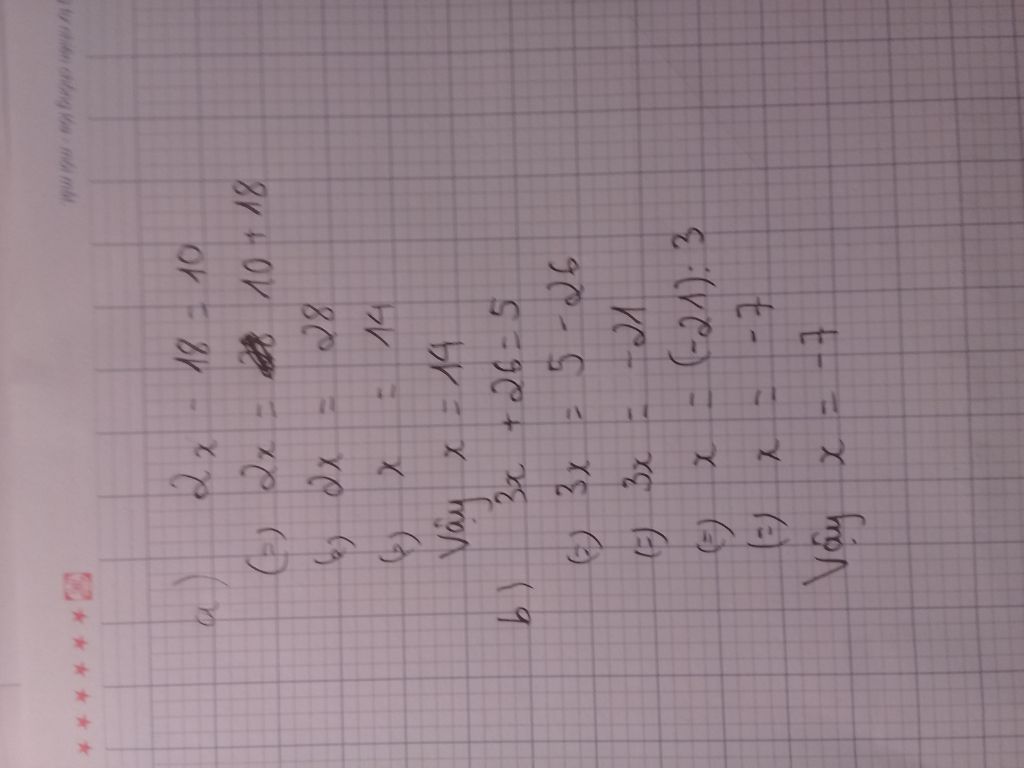 a) 2x - 18 = 10
(=) 2x = 10 + 18
(=) 2x = 28
(=) x = 14
Vậy x = 14
b) 3x + 26 = 5
(=) 3x = 5 - 26
(=) 3x = -21
(=) x = (-21) : 3
(=) x = -7
Vậy x = -7